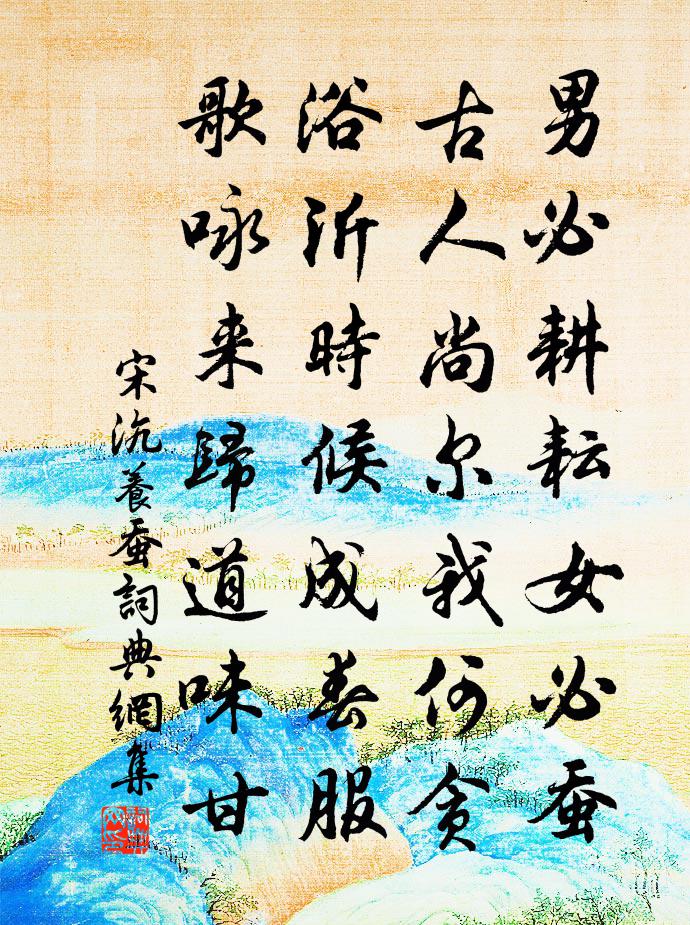 男必耕耘女必蚕
古人尚尔我何贪
浴沂時候成春服
歌咏来歸道味甘
宋沉養蚕詞典網集